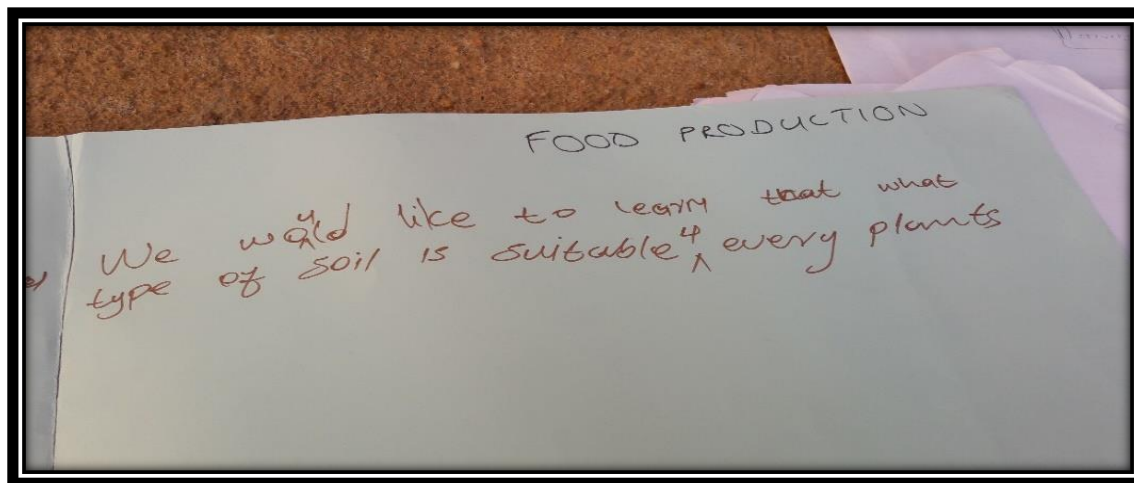 FOOD PRODUCTION
We would like to learn that what
type of soil is suitable 4 every plants